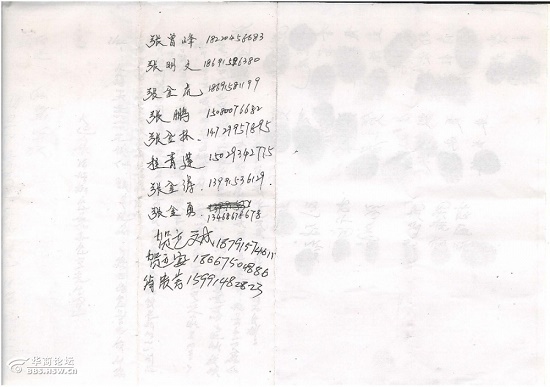 张曾峰 18220456683
张明文 18691586380
张金虎 18691581199
张鹏 15080076682
张金林 14729957895
程青莲 15029342775
张金涛 13991536129
张金勇
13468678678
贺
贺 18667504886
15991482823
华商论坛
BBS.HSW.CN